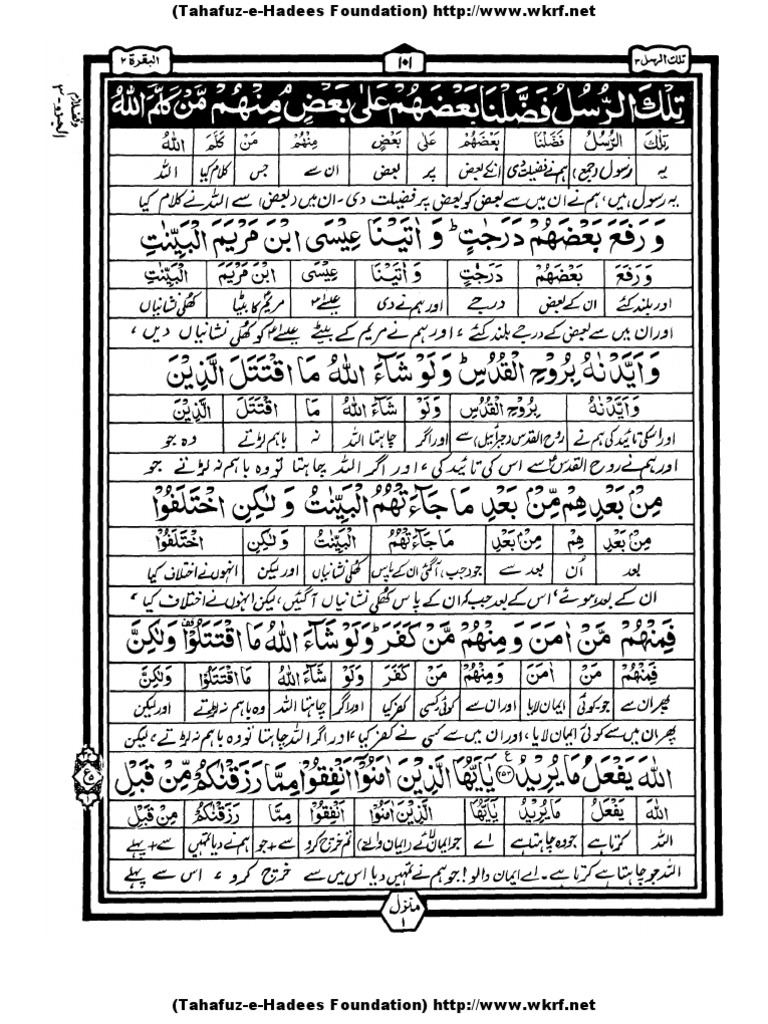 (Tahafuz-e-Hadees Foundation) http://www.wkrf.net
تلك الرسل ۳ ۱۰۱ البقرة ۲
تِلْكَ الرُّسُلُ فَضَّلْنَا بَعْضَهُمْ عَلٰى بَعْضٍ مِنْهُمْ مَّنْ كَلَّمَ اللّٰهُ
تِلْكَ الرُّسُلُ فَضَّلْنَا بَعْضَهُمْ عَلٰى بَعْضٍ مِنْهُمْ مَنْ كَلَّمَ اللّٰهُ
یہ رسول (جمع) ہم نے فضیلت دی انکے بعض پر بعض ان سے جس کلام کیا اللہ
یہ رسول ہیں، ہم نے ان میں سے بعض کو بعض پر فضیلت دی۔ ان میں (بعض) سے اللہ نے کلام کیا
وَ رَفَعَ بَعْضَهُمْ دَرَجٰتٍ ؕ وَ اٰتَيْنَا عِيْسَى ابْنَ مَرْيَمَ الْبَيِّنٰتِ
وَرَفَعَ بَعْضَهُمْ دَرَجٰتٍ وَاٰتَيْنَا عِيْسَى ابْنَ مَرْيَمَ الْبَيِّنٰتِ
اور بلند کئے ان کے بعض درجے اور ہم نے دی عیسٰےؑ مریم کا بیٹا کھلی نشانیاں
اور ان میں سے بعض کے درجے بلند کئے، اور ہم نے مریم کے بیٹے عیسٰےؑ کو کھلی نشانیاں دیں،
وَ اَيَّدْنٰهُ بِرُوْحِ الْقُدُسِ ؕ وَلَوْ شَآءَ اللّٰهُ مَا اقْتَتَلَ الَّذِيْنَ
وَاَيَّدْنٰهُ بِرُوْحِ الْقُدُسِ وَلَوْ شَآءَ اللّٰهُ مَا اقْتَتَلَ الَّذِيْنَ
اور اسکی تائید کی ہم نے روح القدس (جبرائیل) سے اور اگر چاہتا اللہ نہ باہم لڑتے وہ جو
اور ہم نے روح القدس سے اس کی تائید کی، اور اگر اللہ چاہتا تو وہ باہم نہ لڑتے جو
مِنْۢ بَعْدِهِمْ مِّنْۢ بَعْدِ مَا جَآءَتْهُمُ الْبَيِّنٰتُ وَلٰكِنِ اخْتَلَفُوْا
مِنْۢ بَعْدِ هِمْ مِّنْۢ بَعْدِ مَا جَآءَتْهُمُ الْبَيِّنٰتُ وَلٰكِنِ اخْتَلَفُوْا
بعد اُن بعد سے جو (جب) آگئی ان کے پاس کھلی نشانیاں اور لیکن انہوں نے اختلاف کیا
ان کے بعد ہوئے، اس کے بعد جب کہ ان کے پاس کھلی نشانیاں آگئیں، لیکن انہوں نے اختلاف کیا،
فَمِنْهُمْ مَّنْ اٰمَنَ وَ مِنْهُمْ مَّنْ كَفَرَ ؕ وَلَوْ شَآءَ اللّٰهُ مَا اقْتَتَلُوْا وَلٰكِنَّ
فَمِنْهُمْ مَنْ اٰمَنَ وَمِنْهُمْ مَنْ كَفَرَ وَلَوْ شَآءَ اللّٰهُ مَا اقْتَتَلُوْا وَلٰكِنَّ
پھر ان سے جو، کوئی ایمان لایا اور ان سے کوئی کسی کفر کیا اور اگر چاہتا اللہ وہ باہم نہ لڑتے اور لیکن
پھر ان میں سے کوئی ایمان لایا، اور ان میں سے کسی نے کفر کیا، اور اگر اللہ چاہتا تو وہ باہم نہ لڑتے، لیکن
اللّٰهَ يَفْعَلُ مَا يُرِيْدُ ۝۲۵۳ يٰۤاَيُّهَا الَّذِيْنَ اٰمَنُوْۤا اَنْفِقُوْا مِمَّا رَزَقْنٰكُمْ مِّنْ قَبْلِ
اللّٰهَ يَفْعَلُ مَا يُرِيْدُ يٰۤاَيُّهَا الَّذِيْنَ اٰمَنُوْا اَنْفِقُوْا مِمَّا رَزَقْنٰكُمْ مِنْ قَبْلِ
اللہ کرتا ہے جو وہ چاہتا ہے اے جو ایمان لائے (ایمان والے) تم خرچ کرو سے + جو ہم نے دیا تمہیں سے + پہلے
اللہ جو چاہتا ہے کرتا ہے۔ اے ایمان والو! جو ہم نے تمہیں دیا اس میں سے خرچ کرو، اس سے پہلے
منزل ۱
(Tahafuz-e-Hadees Foundation) http://www.wkrf.net